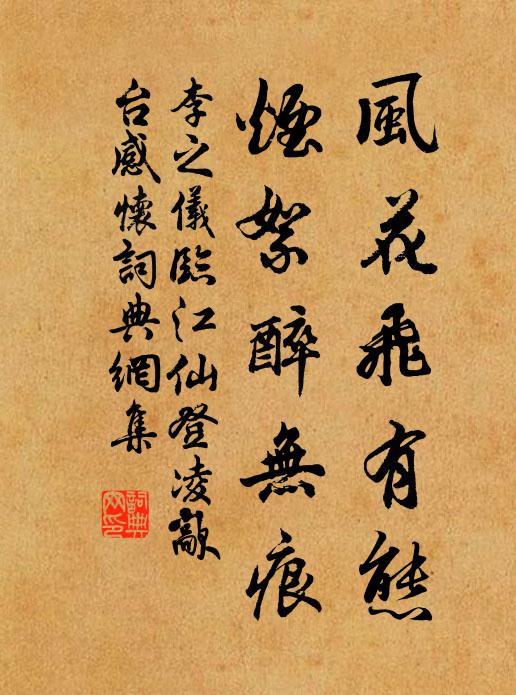 風花飛有態
煙絮醉無痕
李之儀臨江仙登凌歊
台感懷詞典網集
詞典网印